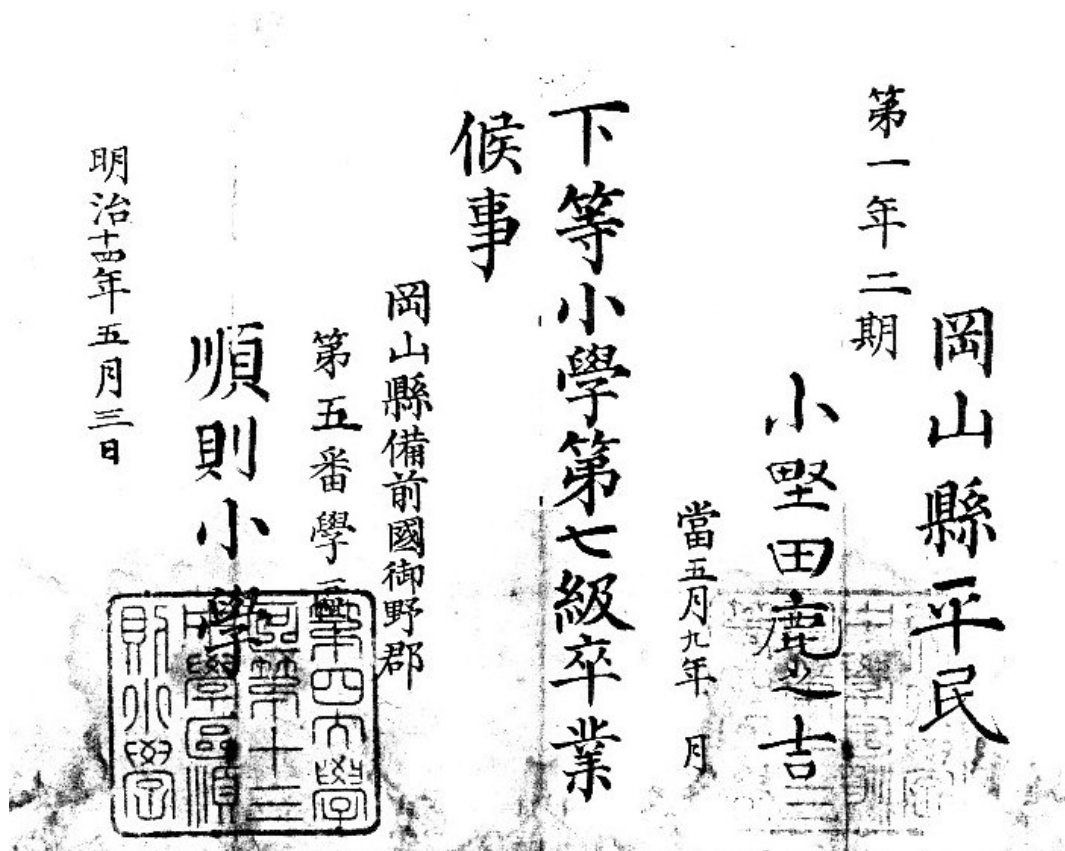 岡山縣平民
第一年二期
小野田鹿之吉
當五月九年 月
下等小學第七級卒業
候事
岡山縣備前國御野郡
第五番學區
順則小學
明治十四年五月三日
第四大學
區第十三
中學區順
則小學